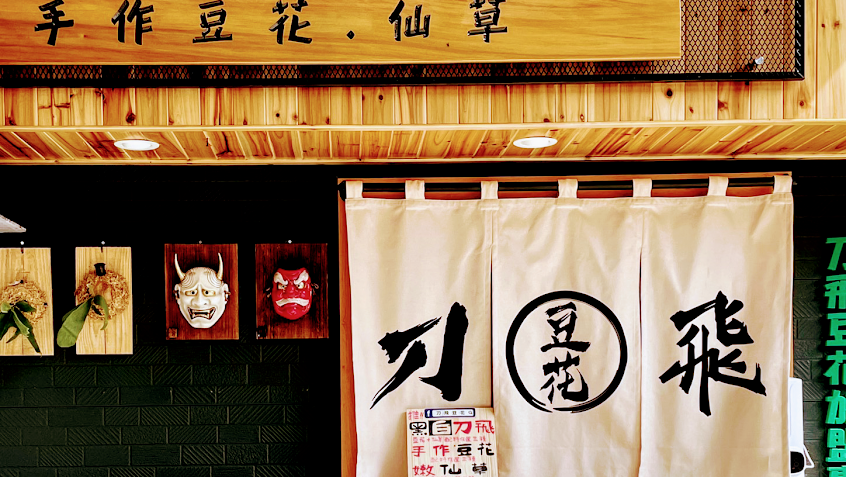 手作豆花.仙草
刀
豆花
飛
黑白刀飛
手作豆花
嫩仙草
刀飛豆花加盟